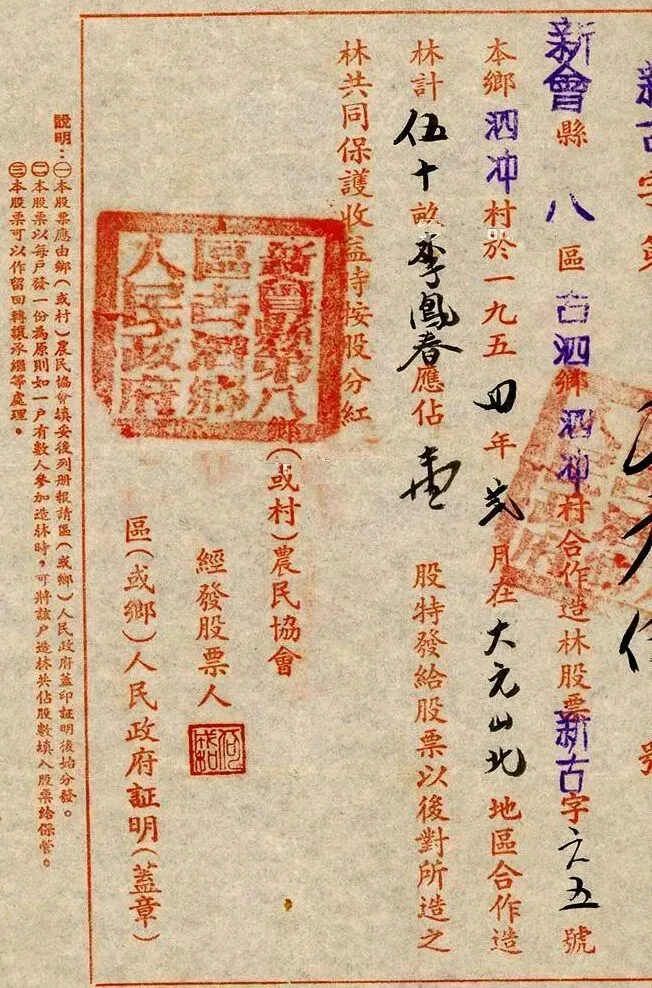 新古字第 號
新會縣八區古泗鄉泗冲村合作造林股票新古字六五號
本鄉泗冲村於一九五四年弍月在大元山北地區合作造
林計伍十畝李鳳春應佔壹股特發給股票以後對所造之
林共同保護收益時按股分紅
鄉(或村)農民協會
經發股票人
區(或鄉)人民政府証明(蓋章)
新會縣第八區古泗鄉人民政府
說明：㊀本股票應由鄉(或村)農民協會填妥後列册報請區(或鄉)人民政府蓋印証明後始分發。
㊁本股票以每戶發一份為原則如一戶有數人參加造林時，可將該戶造林共佔股數填入股票給保管。
㊂本股票可以作留回轉讓承繼等處理。